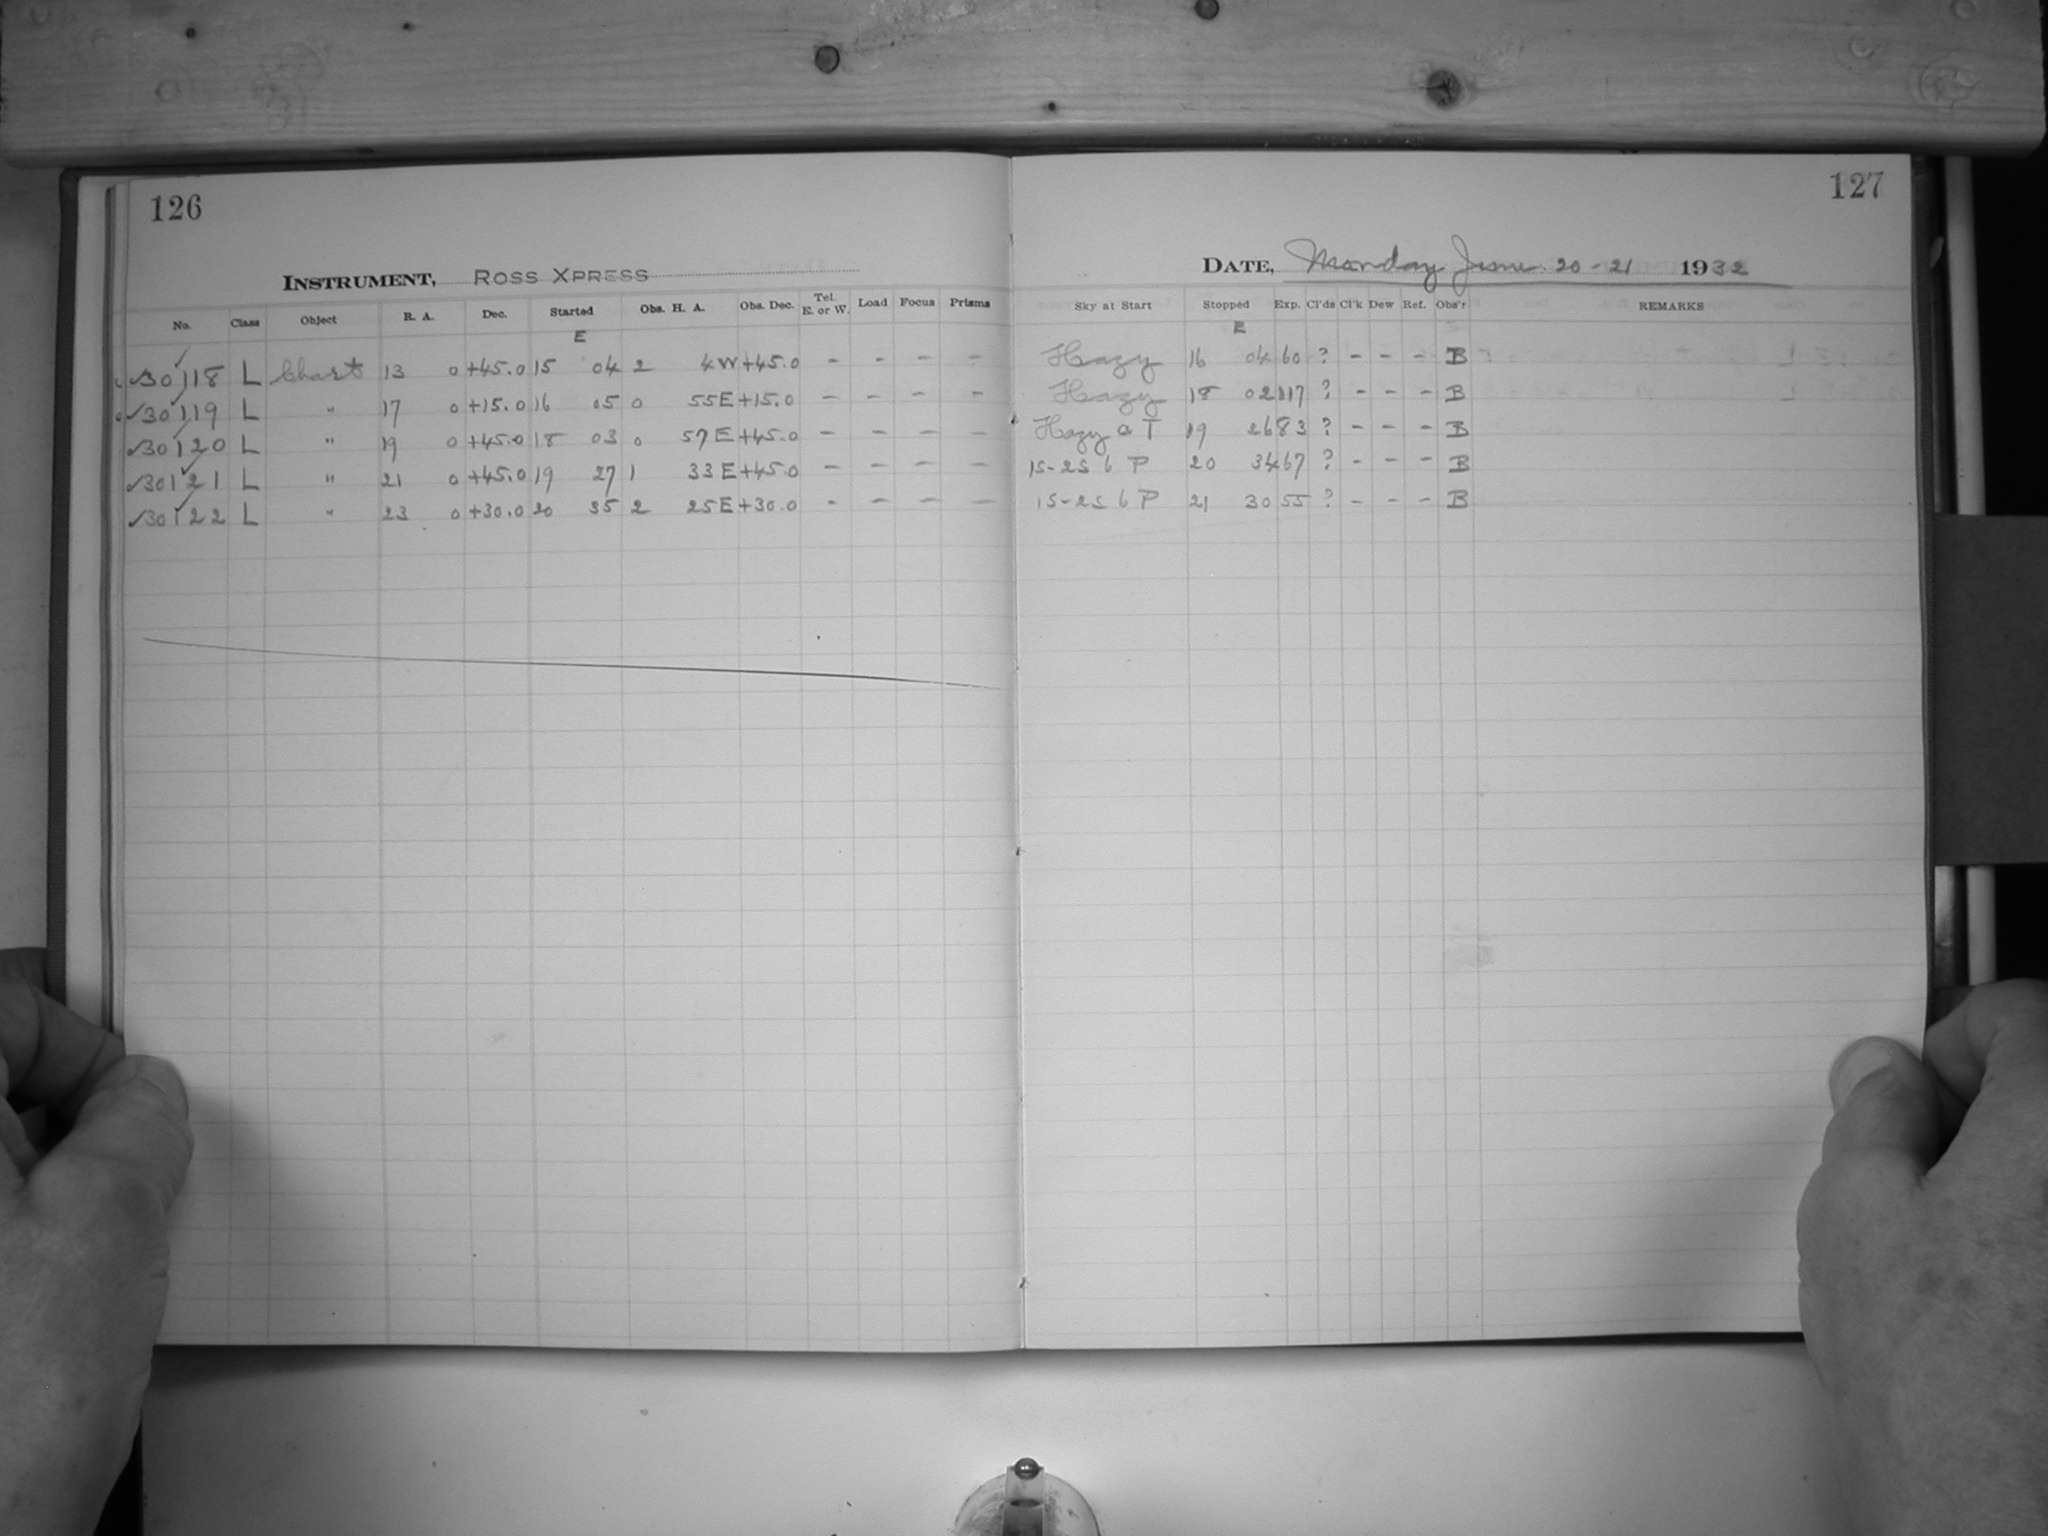 126
INSTRUMENT, ROSS XPRESS
No. Class Object R. A. Dec. Started Obs. H. A. Obs. Dec. Tel. E. or W. Load Focus Prisms
E
✓30118 L Chart 13 0 +45.0 15 04 2 4 W +45.0 - - - -
✓30119 L " 17 0 +15.0 16 05 0 55 E +15.0 - - - -
✓30120 L " 19 0 +45.0 18 03 0 57 E +45.0 - - - -
✓30121 L " 21 0 +45.0 19 27 1 33 E +45.0 - - - -
✓30122 L " 23 0 +30.0 20 35 2 25 E +30.0 - - - -
127
DATE, Monday June 20-21 1932
Sky at Start Stopped Exp. Cl'ds Cl'k Dew Ref. Obs'r REMARKS
E
Hazy 16 04 60 ? - - - B
Hazy 18 02 117 ? - - - B
Hazy a T 19 26 83 ? - - - B
1S-2S 6 P 20 34 67 ? - - - B
1S-2S 6 P 21 30 55 ? - - - B